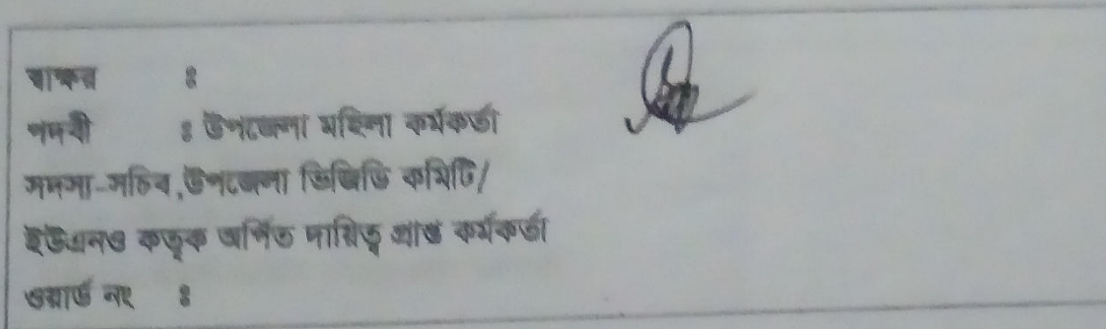 স্বাক্ষর ঃ
পদবী ঃ উপজেলা মহিলা কর্মকর্তা
সদস্য-সচিব,উপজেলা ভিজিডি কমিটি/
ইউএনও কতৃক অর্পিত দায়িত্ব প্রাপ্ত কর্মকর্তা
ওয়ার্ড নং ঃ